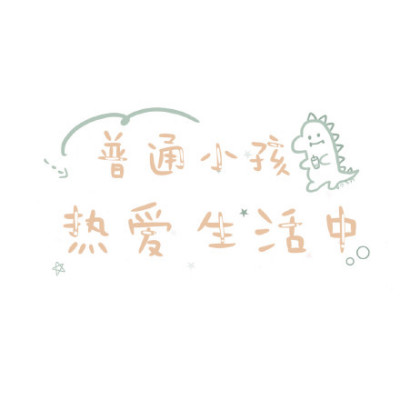 普通小孩
热爱生活中